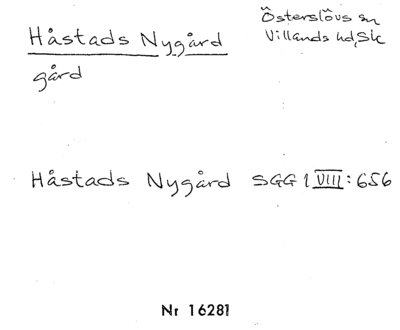 Håstads Nygård
Österslövs sn
Villands hd, Sk
gård
Håstads Nygård SGG 1 VIII: 656
Nr 16281